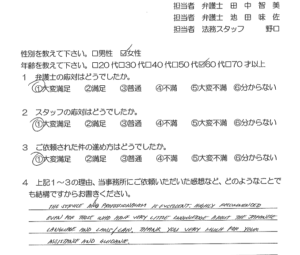 担当者 弁護士 田中智美
担当者 弁護士 池田味佐
担当者 法務スタッフ 野口
性別を教えて下さい。□男性 ☑女性
年齢を教えて下さい。□20代□30代□40代□50代☑60代□70才以上
1 弁護士の応対はどうでしたか。
①大変満足 ②満足 ③普通 ④不満 ⑤大変不満 ⑥分からない
2 スタッフの応対はどうでしたか。
①大変満足 ②満足 ③普通 ④不満 ⑤大変不満 ⑥分からない
3 ご依頼された件の進め方はどうでしたか。
①大変満足 ②満足 ③普通 ④不満 ⑤大変不満 ⑥分からない
4 上記1～3の理由、当事務所にご依頼いただいた感想など、どのようなことで
も結構ですからお書きください。
THE SERVICE AND PROFESSIONALISM IS EXCELLENT. HIGHLY RECOMMENDED
EVEN FOR THOSE WHO HAVE VERY LITTLE KNOWLEDGE ABOUT THE JAPANESE
LANGUAGE AND LAWS/LAW. THANK YOU VERY MUCH FOR YOUR
ASSISTANCE AND GUIDANCE.